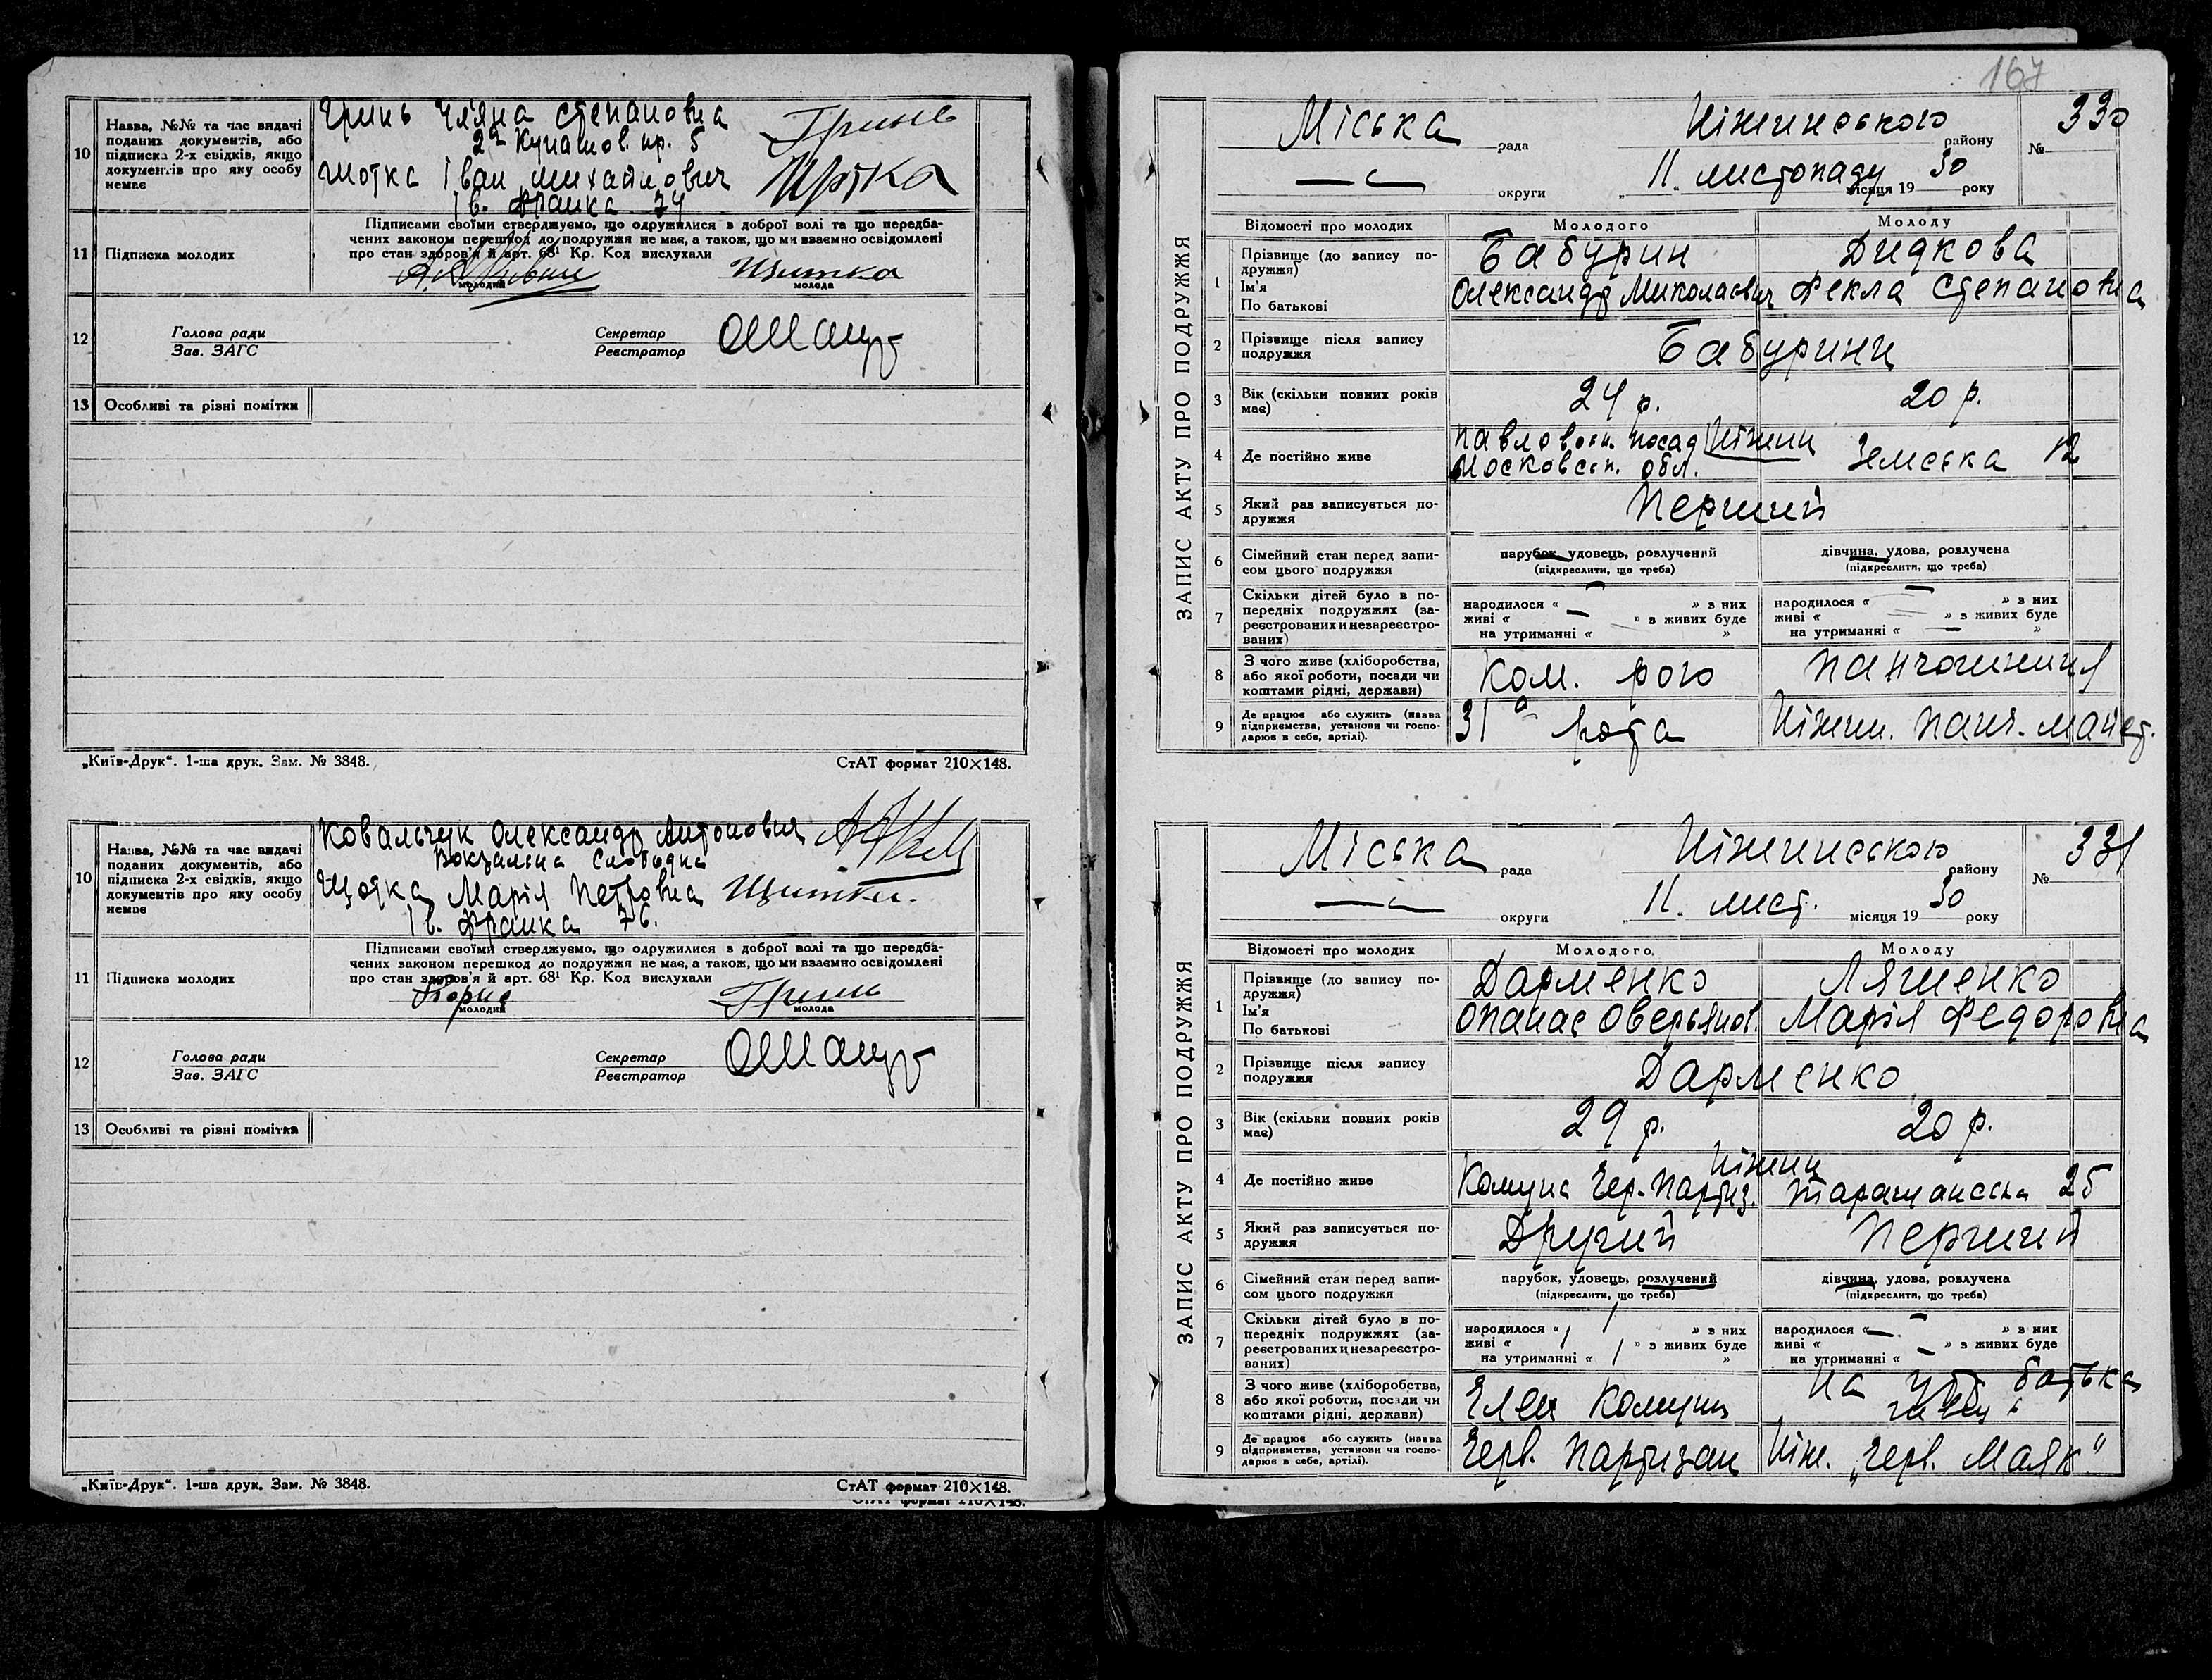 10 Назва, №№ та час видачі поданих документів, або підписка 2-х свідків, якщо документів про яку особу немає
Гринь Уляна Степановна
2й пр. 5
Шотка Іван Михайлович
Ів. Франка 74
11 Підписка молодих
Підписами своїми стверджуємо, що одружилися з доброї волі та що передба-
чених законом перешкод до подружжя не має, а також, що ми взаємно освідомлені
про стан здоров'я й арт. 68¹ Кр. Код вислухали
молодий молода
12 Голова ради Секретар
Зав. ЗАГС Реєстратор
13 Особливі та різні помітки
„Київ-Друк“. 1-ша друк. Зам. № 3848. СтАТ формат 210×148.
10 Назва, №№ та час видачі поданих документів, або підписка 2-х свідків, якщо документів про яку особу немає
Ковальчук Олександр Антонович
Вокзальна
Щотка Марія Петровна
Ів. Франка 76.
11 Підписка молодих
Підписами своїми стверджуємо, що одружилися з доброї волі та що передба-
чених законом перешкод до подружжя не має, а також, що ми взаємно освідомлені
про стан здоров'я й арт. 68¹ Кр. Код вислухали
Гринь
молодий молода
12 Голова ради Секретар
Зав. ЗАГС Реєстратор
13 Особливі та різні помітки
„Київ-Друк“. 1-ша друк. Зам. № 3848. СтАТ формат 210×148.
СтАТ формат 210×148.
167
ЗАПИС АКТУ ПРО ПОДРУЖЖЯ
Міська рада Ніжинського району № 330
— округи „ 11. листопаду місяця 1930 року
Відомості про молодих Молодого Молоду
1 Прізвище (до запису по-
дружжя)
Ім'я
По батькові
Бабурин Дидкова
Олександр Миколаєвич Фекла Степановна
2 Прізвище після запису
подружжя
Бабурини
3 Вік (скільки повних років
має)
24 р. 20 р.
4 Де постійно живе
Павловськ. Посад Ніжин
Московськ. обл. Земська 12
5 Який раз записується по-
дружжя
Перший
6 Сімейний стан перед запи-
сом цього подружжя
парубок, удовець, розлучений дівчина, удова, розлучена
(підкреслити, що треба) (підкреслити, що треба)
7 Скільки дітей було в по-
передніх подружжях (за-
реєстрованих и незареєстро-
ваних)
народилося « — » з них народилося « — » з них
живі « — » в живих буде живі « » в живих буде
на утриманні « » на утриманні « — »
8 З чого живе (хліборобства,
або якої роботи, посади чи
коштами рідні, держави)
Ком. рою
9 Де працює або служить (назва
підприємства, установи чи госпо-
дарює в себе, артілі).
31а рота Ніжин. панч. майст.
ЗАПИС АКТУ ПРО ПОДРУЖЖЯ
Міська рада Ніжинського району № 331
— округи „ 11. лист. місяця 1930 року
Відомості про молодих Молодого Молоду
1 Прізвище (до запису по-
дружжя)
Ім'я
По батькові
Дарменко Ляшенко
Опанас Оверьянов. Марія Федоровна
2 Прізвище після запису
подружжя
Дарменко
3 Вік (скільки повних років
має)
29 р. 20 р.
4 Де постійно живе
Ніжин
Комуна Чер. Партиз. Таращанська 25
5 Який раз записується по-
дружжя
Другий Перший
6 Сімейний стан перед запи-
сом цього подружжя
парубок, удовець, розлучений дівчина, удова, розлучена
(підкреслити, що треба) (підкреслити, що треба)
7 Скільки дітей було в по-
передніх подружжях (за-
реєстрованих и незареєстро-
ваних)
народилося « 1 » з них народилося « — » з них
живі « 1 » в живих буде живі « » в живих буде
на утриманні « 1 » на утриманні « — »
8 З чого живе (хліборобства,
або якої роботи, посади чи
коштами рідні, держави)
Член комуни на утр. батька
9 Де працює або служить (назва
підприємства, установи чи госпо-
дарює в себе, артілі).
Черв. Партизан Ніж. „Черв. Маяк“